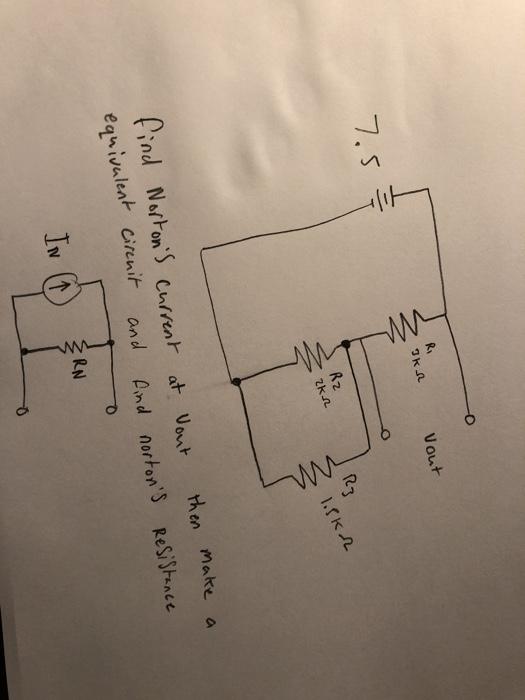 7.5
R1
3KΩ
Vout
R2
2KΩ
R3
1.5KΩ
find Norton's current at Vout then make a
equivalent circuit and find norton's Resistance
IN
RN